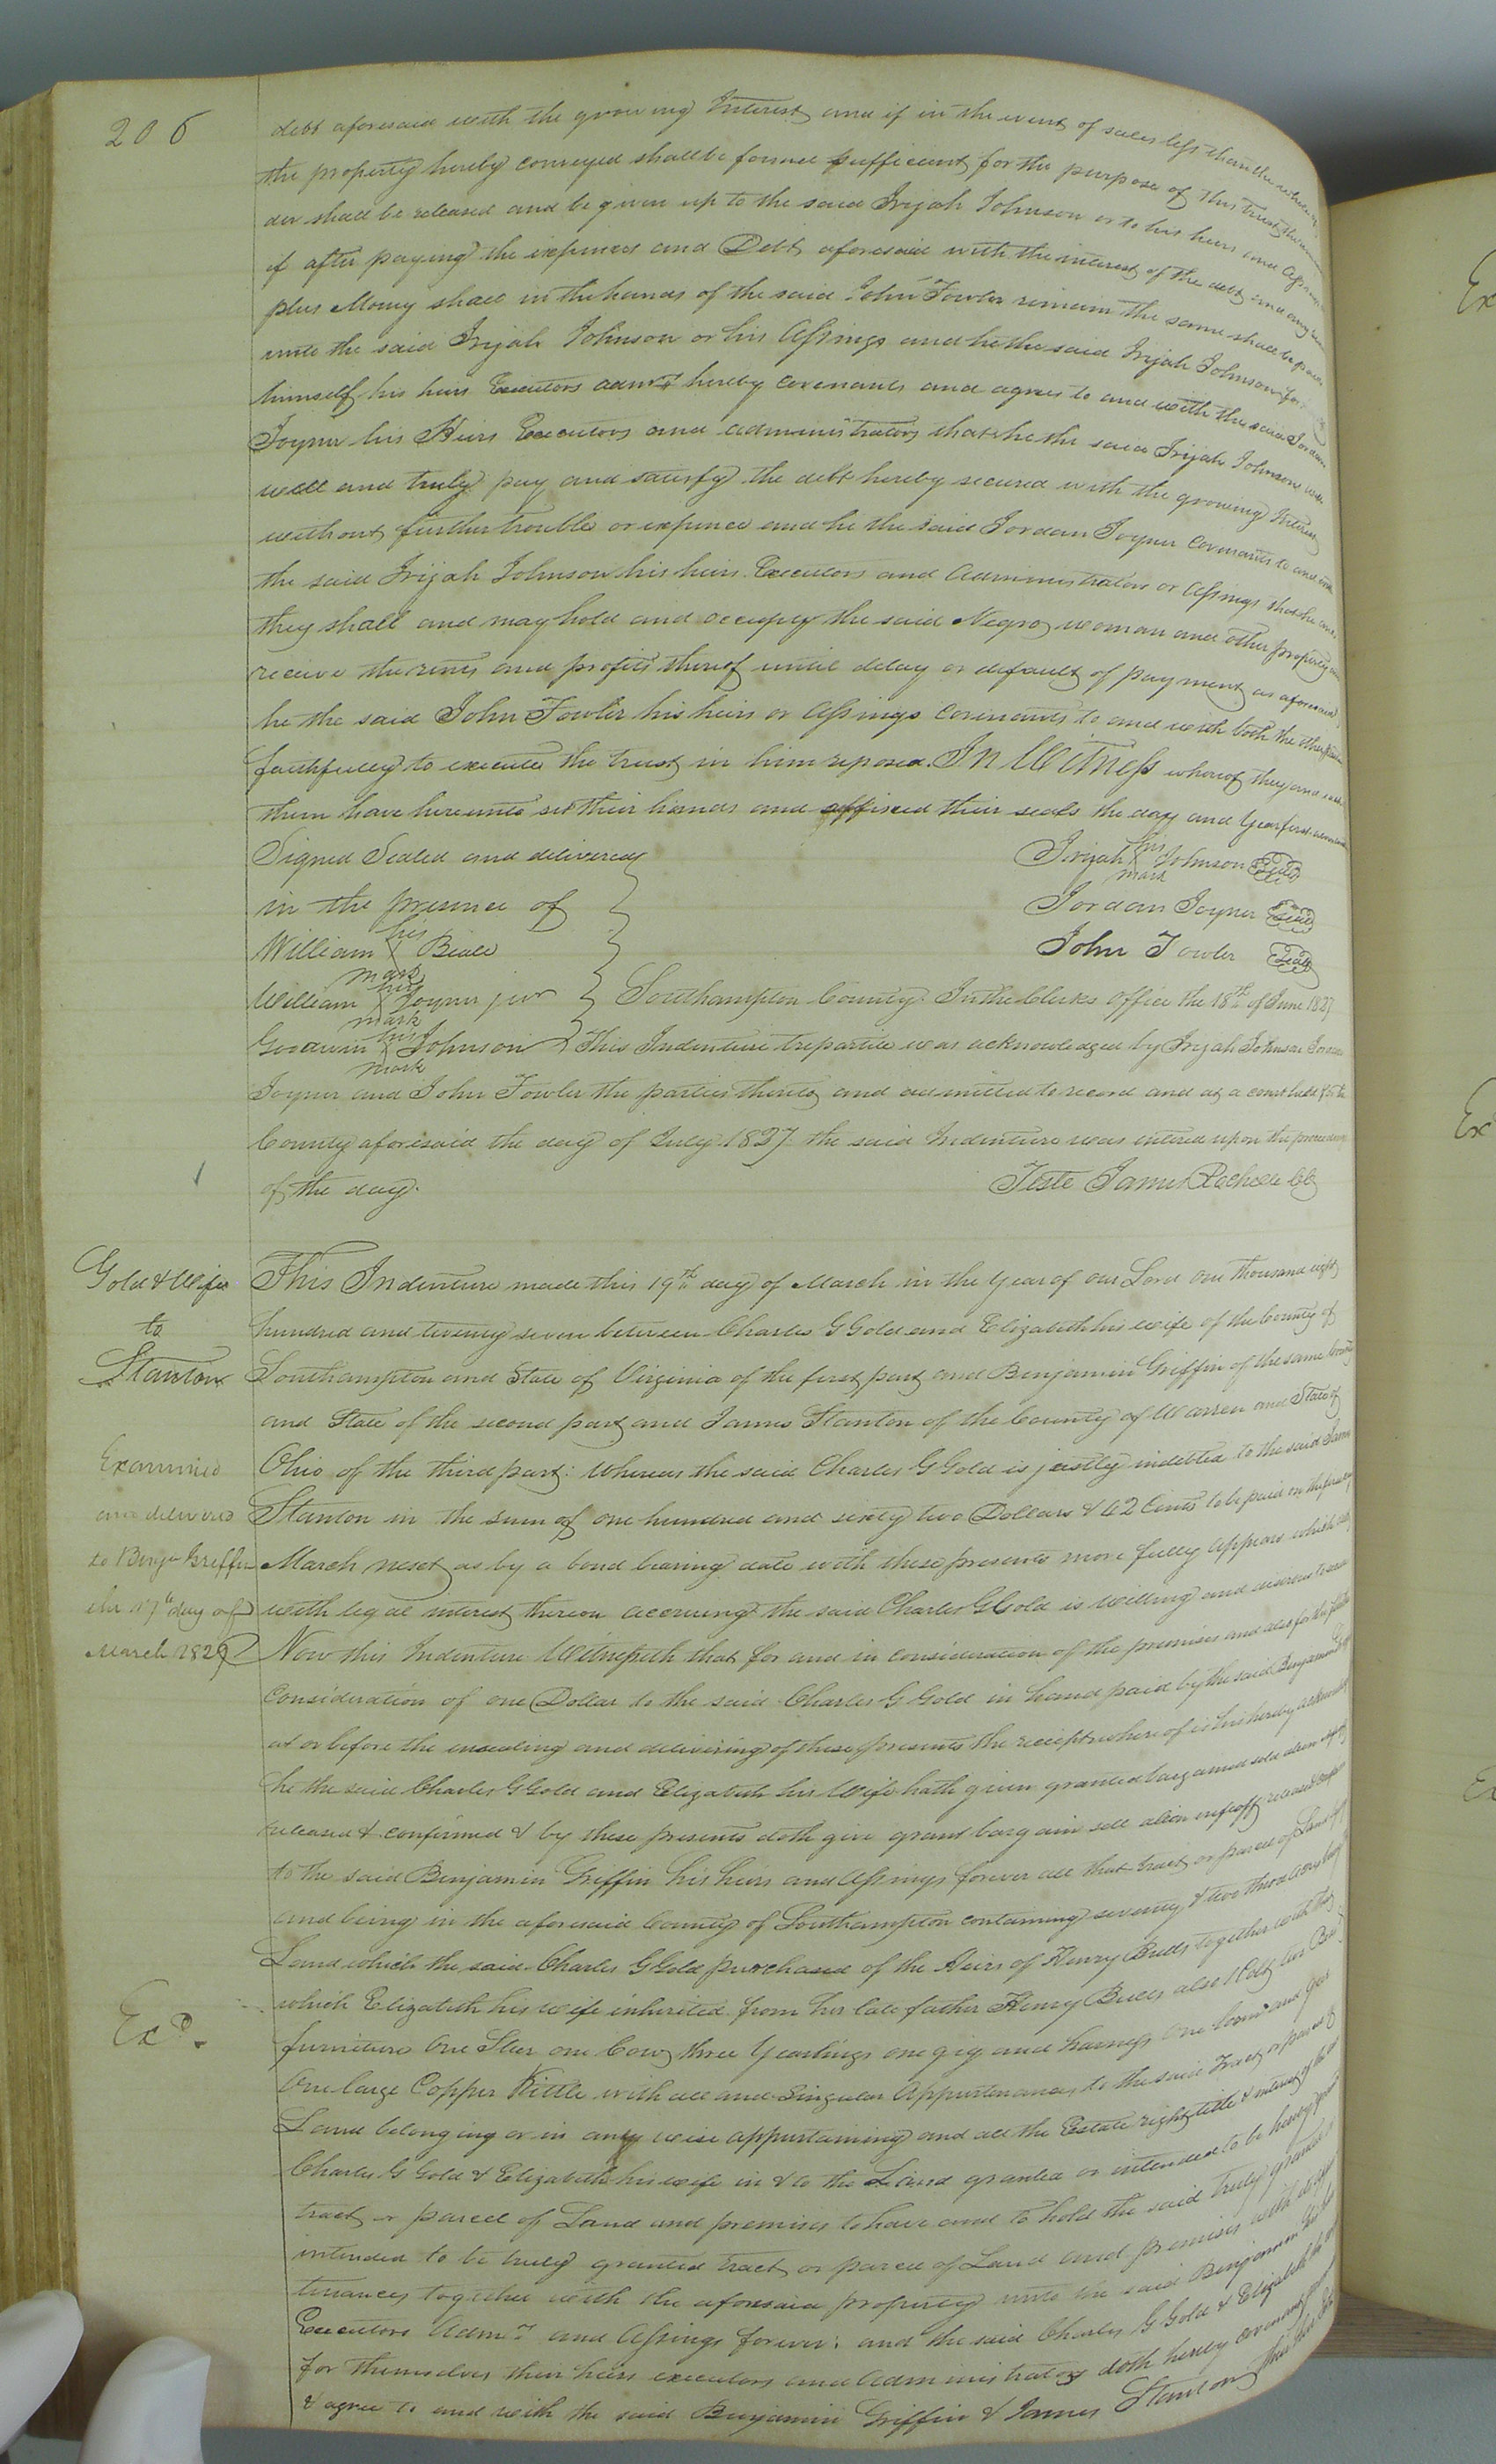 206
debt aforesaid with the growing Interest and if in the event of sales less than the whole of
the property hereby conveyed shall be found sufficient for the purpose of this trust the
der shall be released and be given up to the said Irijah Johnson or to his heirs and Assings
if after paying the expences and Debt aforesaid with the interest of the debt and any
plus Money shall in the hands of the said John Fowler remain the same shall be paid
unto the said Irijah Johnson or his Assings and he the said Irijah Johnson for
himself his heirs Executors admrs hereby covenants and agrees to and with the said Jordan
Joyner his Heirs Executors and administrators that he the said Irijah Johnson will
well and truly pay and satisfy the debt hereby secured with the growing Interest
without further trouble or expence and he the said Jordan Joyner covenants to and with
the said Irijah Johnson his heirs Executors and Administrators or Assings that he and
they shall and may hold and occupy the said Negro woman and other property and
receive the rents and profits thereof until delay or default of payment as aforesaid
he the said John Fowler his heirs or Assings covenants to and with both the other parties
faithfully to execute the trust in him reposed. In Witness whereof they and each
them have hereunto set their hands and affixed their seals the day and Year first
Signed Sealed and delivered
in the presence of
William his X mark Beale
William his X mark Joyner junr
Goodwin his X mark Johnson
Irijah his X mark Johnson Seal
Jordan Joyner Seal
John Fowler Seal
Southampton County. In the Clerks office the 18th of June 1827
This Indenture tripartite was acknowledged by Irijah Johnson Jordan
Joyner and John Fowler the parties thereto and admitted to record and at a court held for the
County aforesaid the day of July 1827 the said Indenture was entered upon the proceedings
of the day.
Teste James Rochelle Clk
Gold & Wife
to
Stanton
Examined
and delivered
to Benja Griffin
the 17th day of
March 1829
Exd.
This Indenture made this 19th day of March in the Year of our Lord One thousand eight
hundred and twenty seven between Charles G Gold and Elizabeth his wife of the County of
Southampton and State of Virginia of the first part and Benjamin Griffin of the same County
and State of the second part and James Stanton of the County of Warren and State of
Ohio of the third part: Whereas the said Charles G Gold is justly indebted to the said James
Stanton in the sum of one hundred and sixty two Dollars & 42 Cents to be paid on the first
March next as by a bond bearing date with these presents more fully appears which
with legal interest thereon accruing the said Charles G Gold is willing and desirous to
Now this Indenture Witnesseth that for and in consideration of the premises and also for the further
consideration of one Dollar to the said Charles G Gold in hand paid by the said Benjamin
at or before the ensealing and delivering of these presents the receipt whereof is hereby
he the said Charles G Gold and Elizabeth his Wife hath given granted bargained sold alien
released & confirmed & by these presents doth give grant bargain sell alien enfeoff release
to the said Benjamin Griffin his heirs and Assings forever all that tract or parcel of Land
and being in the aforesaid County of Southampton containing seventy & two thirds acres
Land which the said Charles G Gold purchased of the Heirs of Henry Bulls together with
which Elizabeth his wife inherited from her late father Henry Bulls also 1 Colt
furniture One Steer one Cow three Yearlings one gig and harness One loom and
One large Copper Kittle with all and Singular Appurtenances to the said Tract or parcel of
Land belonging or in any wise appurtaining and all the Estate right title & interest of
Charles G Gold & Elizabeth his wife in & to the Land granted or intended to be hereby
tract or parcel of Land and premises to have and to hold the said truly granted
intended to be truly granted tract or parcel of Land and premises with
tenances together with the aforesaid property unto the said Benjamin
Executors Admrs and Assings forever: and the said Charles G Gold & Elizabeth
for themselves their heirs executors and administrators doth hereby covenant
& agree to and with the said Benjamin Griffin & James Stanton